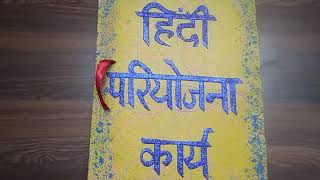 हिंदी
परियोजना
कार्य